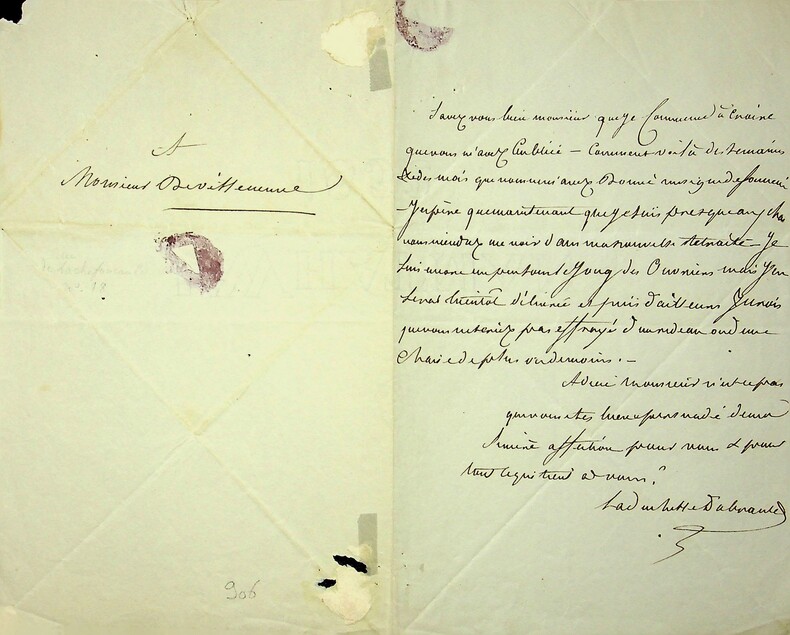 A
Monsieur De Villenenne
906
Savez vous bien monsieur que je commence à croire
que vous m'avez oubliée — Comment voilà des semaines
& des mois que vous ne m'avez donné un signe de souvenir
— J'espère que maintenant que je suis presque
vous viendrez me voir dans ma nouvelle retraite — Je
suis encore un peu sous le joug des ouvriers mais j'en
serai bientôt délivrée et puis d'ailleurs je crois
que vous ne seriez pas effrayé d'un rideau ou d'une
chaise de plus ou de moins. —
Adieu monsieur n'est ce pas
que vous êtes bien persuadé de ma
sincère affection pour vous & pour
tout ce qui tient à vous ?
La duchesse D'abrantès